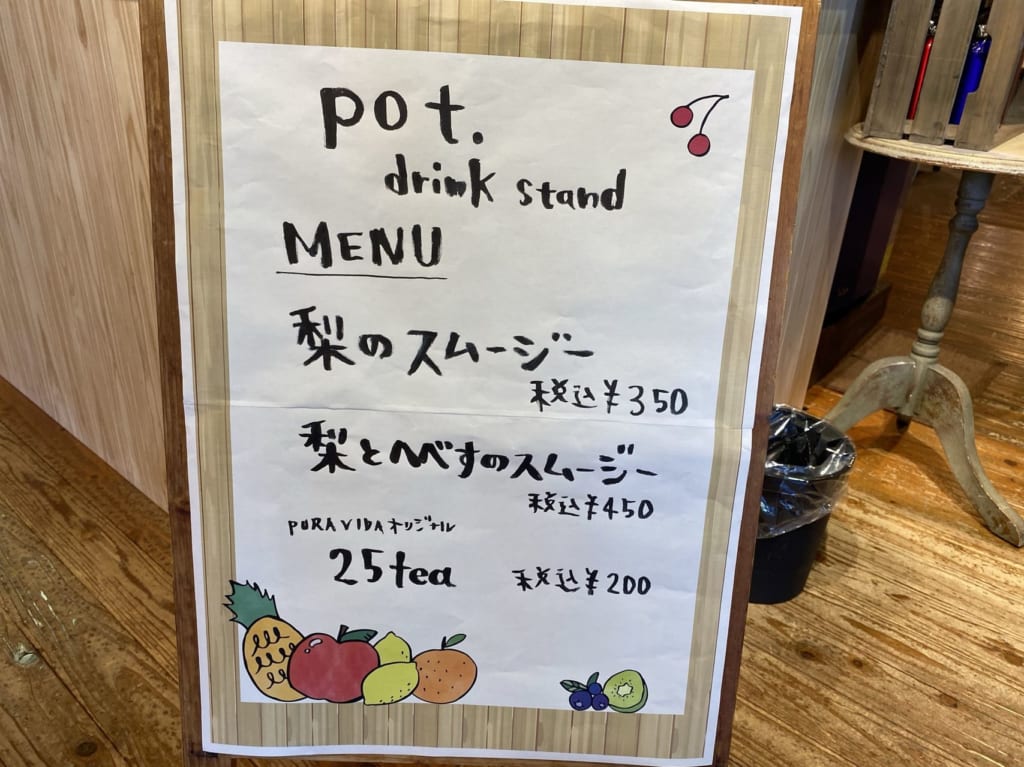 pot.
drink stand
MENU
梨のスムージー
税込¥350
梨とへべすのスムージー
税込¥450
PURA VIDA オリジナル
25tea 税込¥200